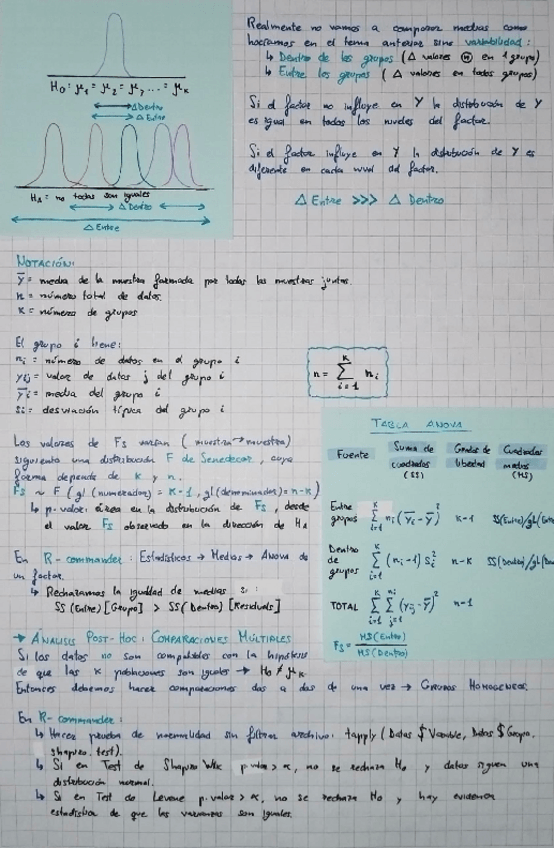 H₀: μ₁ = μ₂ = μ₃ ... = μₖ
Δ Dentro
Δ Entre
Hₐ = no todas son iguales
Δ Dentro
Δ Entre
Realmente no vamos a comparar medias como
hacíamos en el tema anterior sino variabilidad:
↳ Dentro de los grupos (Δ valores en 1 grupo)
↳ Entre los grupos (Δ valores en todos grupos)
Si el factor no influye en Y la distribución de Y
es igual en todos los niveles del factor.
Si el factor influye en Y la distribución de Y es
diferente en cada nivel del factor.
Δ Entre >>> Δ Dentro
NOTACIÓN:
ȳ = media de la muestra formada por todas las muestras juntas.
n = número total de datos.
K = número de grupos
El grupo i tiene:
nᵢ = número de datos en el grupo i
yᵢⱼ = valor de datos j del grupo i
ȳᵢ = media del grupo i
sᵢ = desviación típica del grupo i
n = Σ nᵢ
K
i=1
Los valores de Fs varían (muestra → muestra)
siguiendo una distribución F de Senedecor, cuya
forma depende de K y n.
Fs ~ F (gl (numerador) = K-1, gl (denominador) = n-K)
↳ p-valor: área en la distribución de Fs, desde
el valor Fs observado en la dirección de Hₐ
En R-commander: Estadísticos → Medias → Anova de
un factor.
↳ Rechazamos la igualdad de medias si:
SS (Entre) [Grupo] > SS (Dentro) [Residuals]
TABLA ANOVA
Fuente
Suma de cuadrados (SS)
Grados de libertad
Cuadrados medios (MS)
Entre grupos
K Σ i=1 nᵢ (ȳᵢ - ȳ)²
K-1
SS(Entre)/gl(Entre
Dentro de grupos
K Σ i=1 (nᵢ-1) sᵢ²
n-K
SS(Dentro)/gl(
TOTAL
K Σ i=1 nᵢ Σ j=1 (yᵢⱼ - ȳ)²
n-1
Fs = MS(Entre) / MS(Dentro)
→ ANÁLISIS POST-HOC: COMPARACIONES MÚLTIPLES
Si los datos no son compatibles con la hipótesis
de que las K poblaciones son iguales → H₀ ≠ μₖ
Entonces debemos hacer comparaciones dos a dos de una vez → GRUPOS HOMOGENEOS.
En R-commander:
↳ Hacer prueba de normalidad sin filtrar archivo: tapply (Datos $ Variable, Datos $ Grupo,
shapiro.test).
↳ Si en Test de Shapiro Wilk p.valor > α, no se rechaza H₀ y datos siguen una
distribución normal.
↳ Si en Test de Levene p.valor > α, no se rechaza H₀ y hay evidencia
estadística de que las varianzas son iguales.